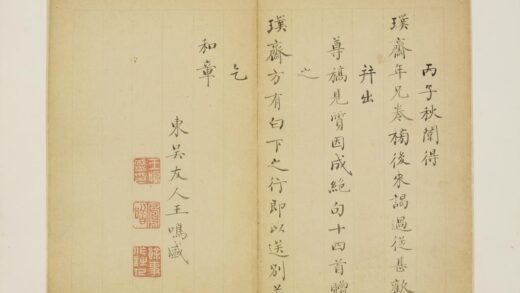 丙子秋闈得
璞齋年兄卷榜後來謁過從甚歡
并出
尊稿見質因成絕句十四首贈
之
璞齋方有白下之行即以送別
乞
和章
東吳友人王鳴盛